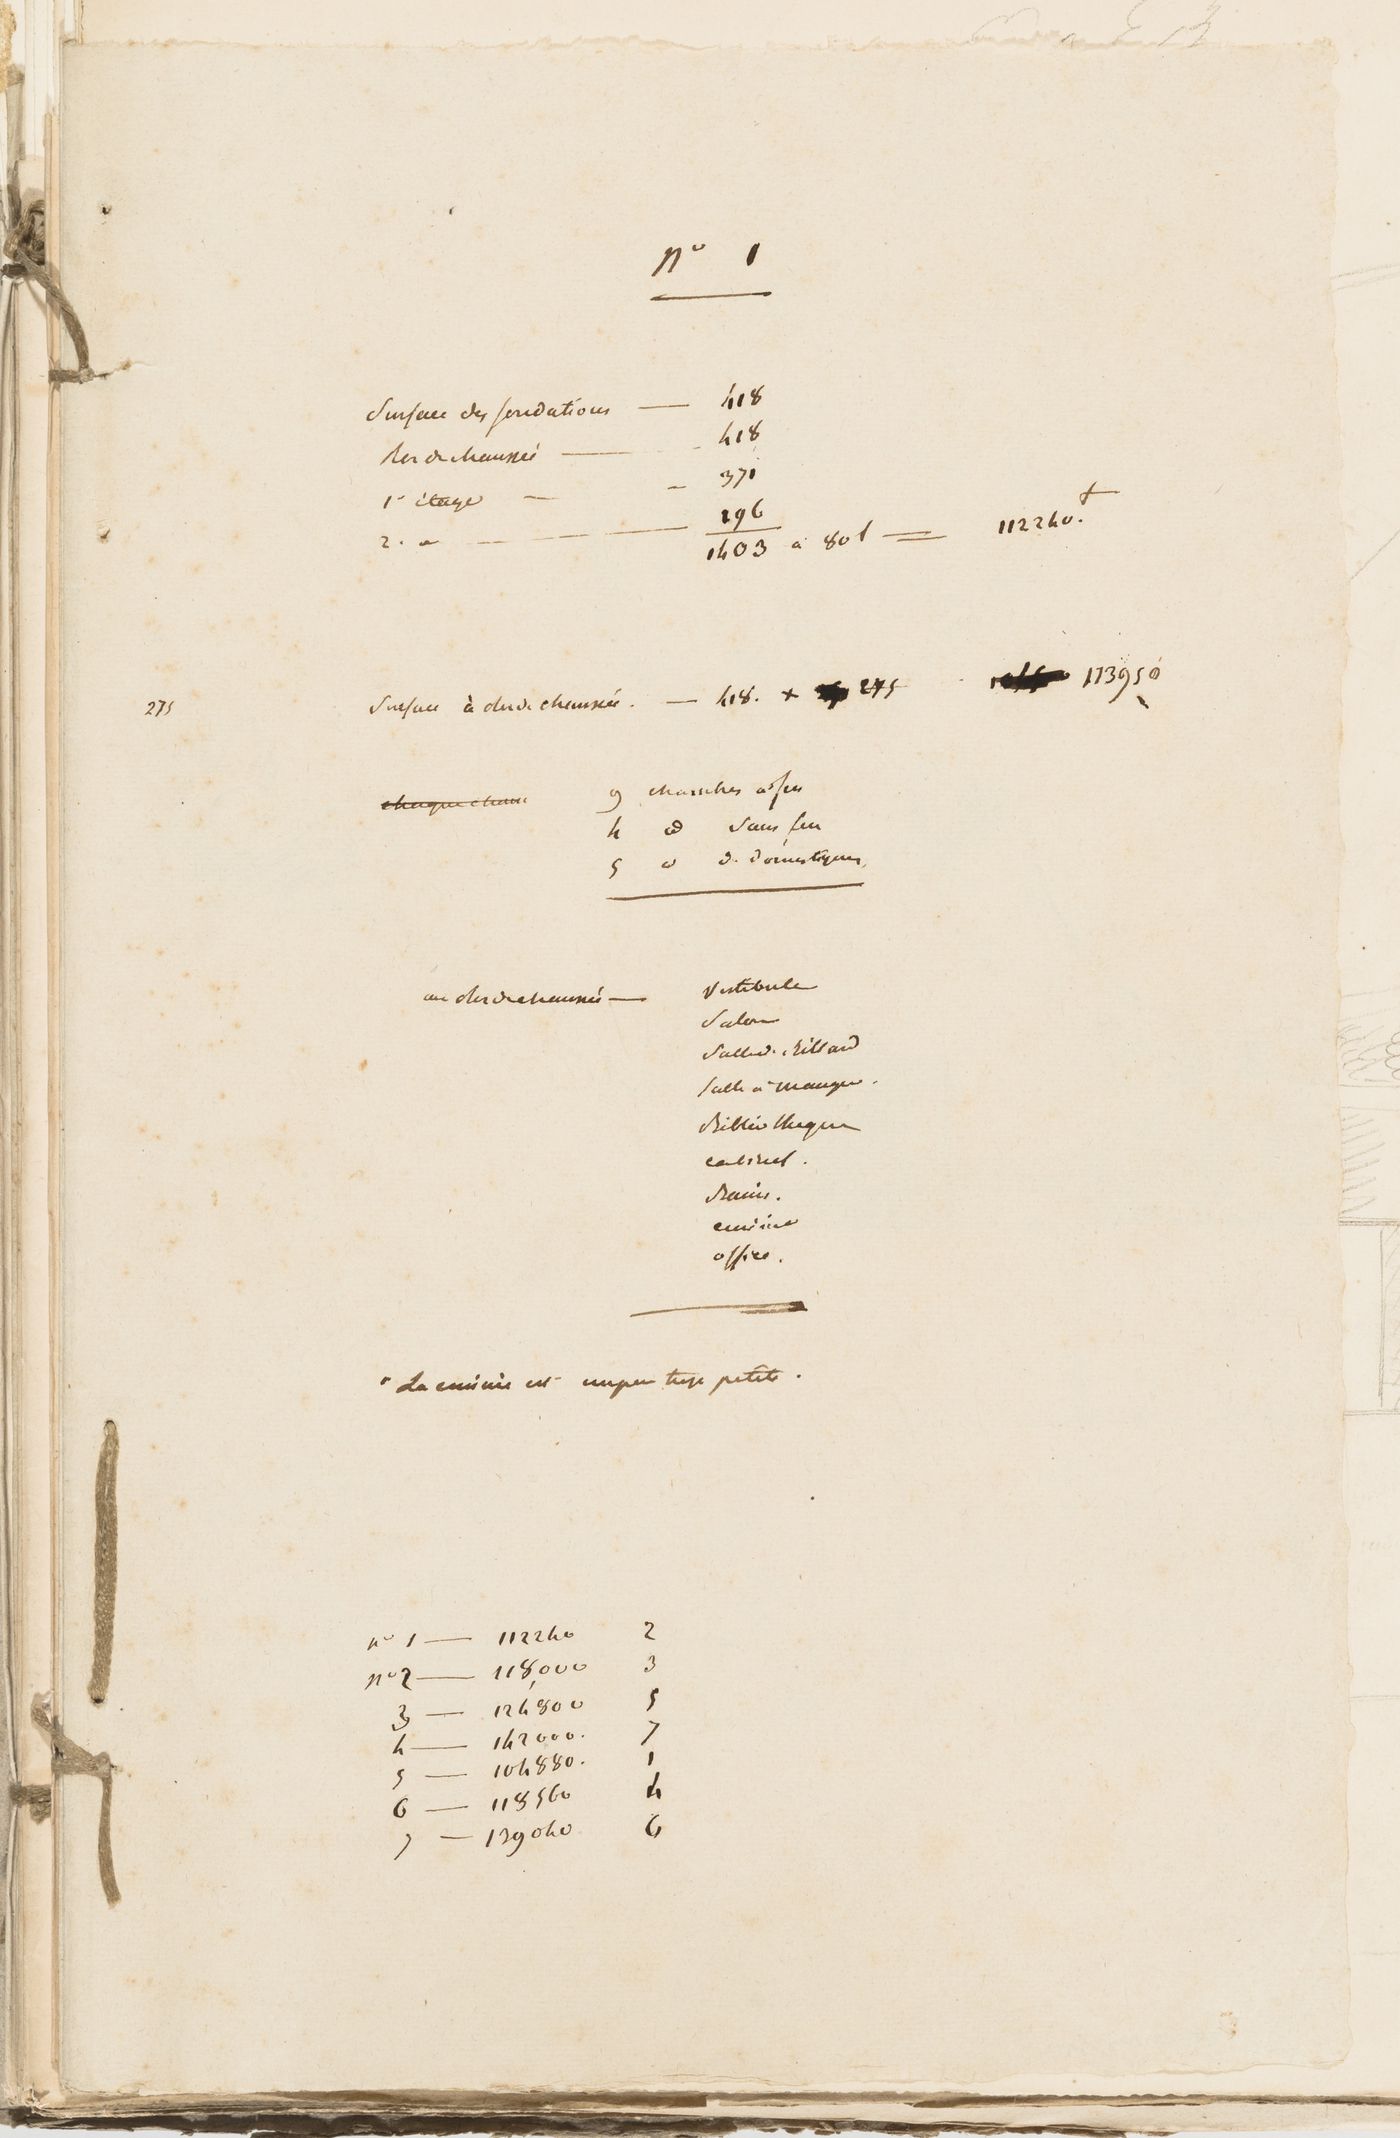 n° 1
Surface des fondations — 418
Rez de chaussée — 418
1er étage — 371
2. d — 196
1403 à 80f = 112240.f
275
Surface à rez de chaussée. — 418. × 275 113950
chaque cham
9 chambres à feu
4 d sans feu
5 d de domestiques,
au rez de chaussée — Vestibule
Salon
Salle de Billard
Salle à manger.
Bibliotheque
cabinet.
Bains.
cuisine
office.
La cuisine est un peu trop petite.
n° 1 — 112240 2
n° 2 — 118,000 3
3 — 124800 5
4 — 142000. 7
5 — 104880. 1
6 — 118560 4
7 — 139040 6